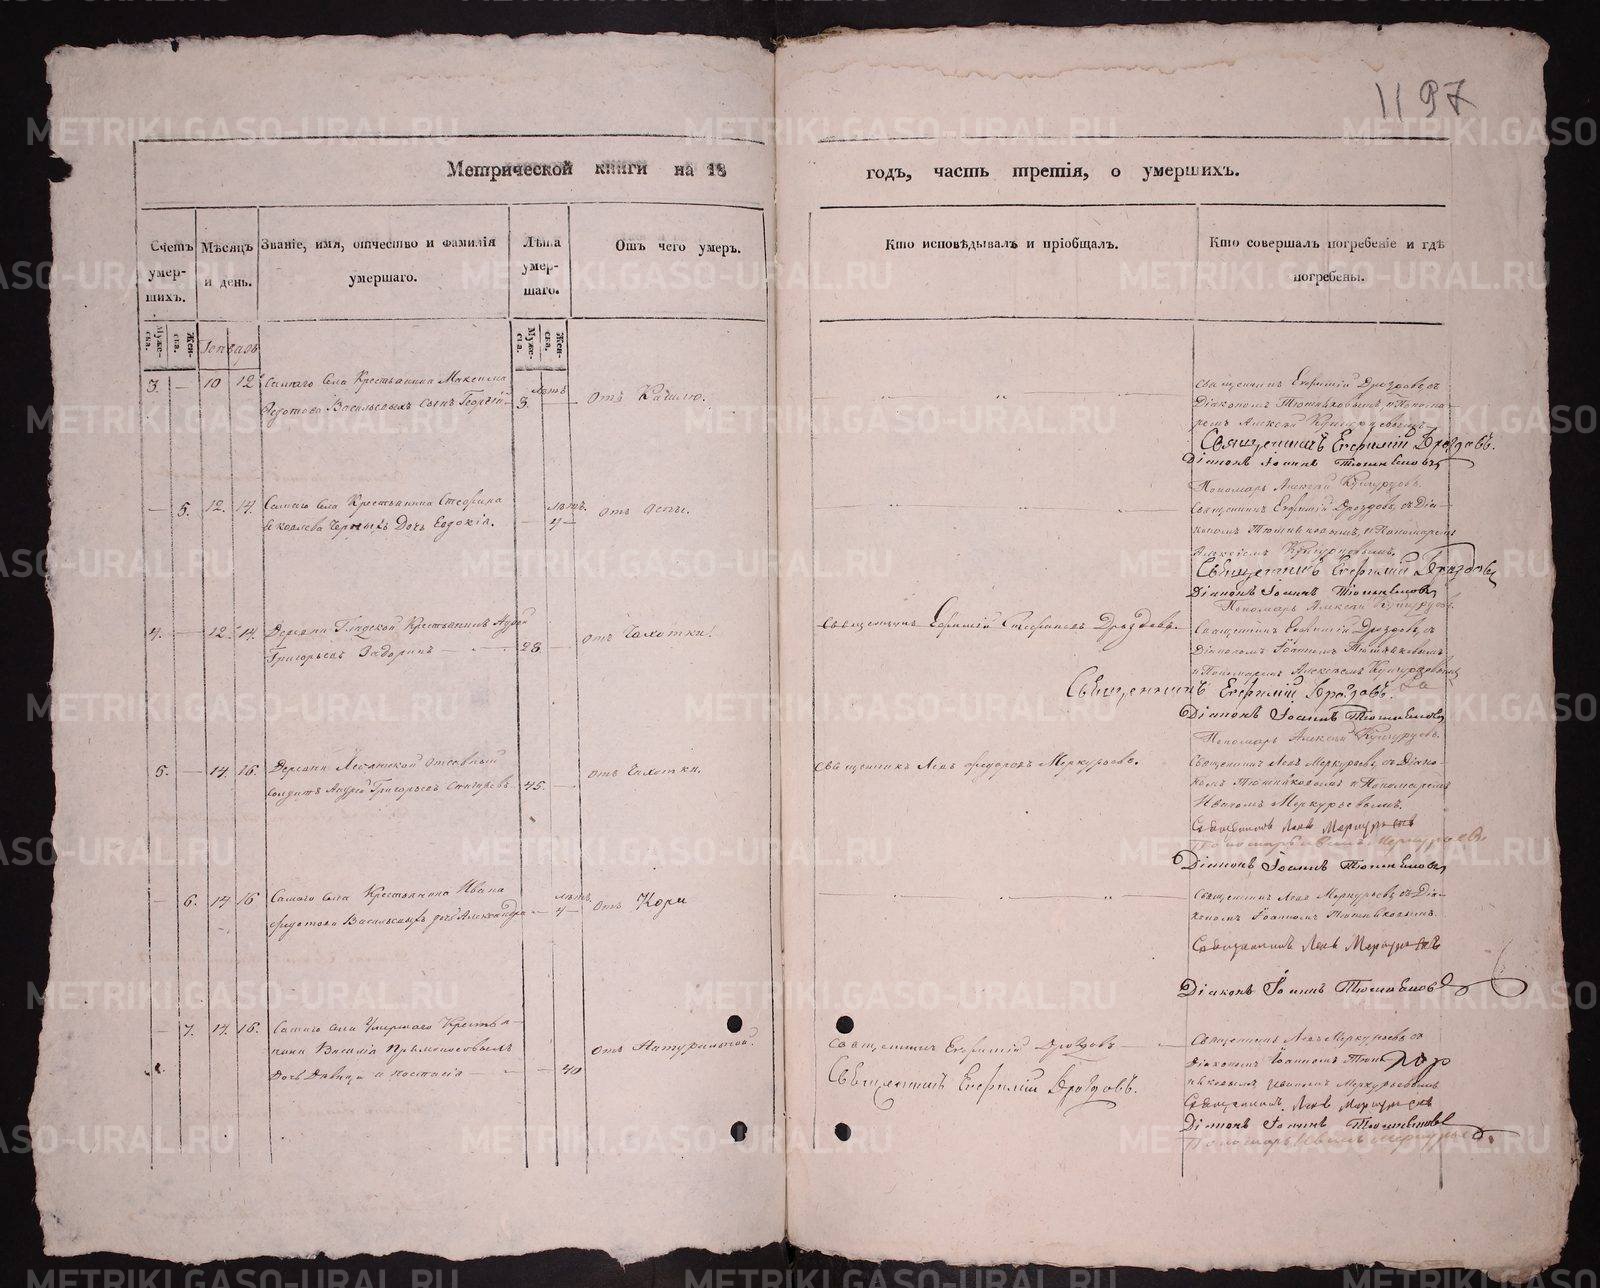 1197
Метрической книги на 18
годъ, часть третія, о умершихъ.
Счетъ умер-шихъ.
Мѣсяцъ и день.
Званіе, имя, отчество и фамилія умершаго.
Лѣта умер-шаго.
Отъ чего умеръ.
Кто исповѣдывалъ и пріобщалъ.
Кто совершалъ погребеніе и гдѣ погребены.
Муже-ска.
Жен-ска.
Муже-ска.
Жен-ска.
3. — 10 12
Самаго села Крестьянина Максима
Васильевыхъ сынъ Георгій
лѣтъ
3. —
Отъ Кашлю.
Священникъ Евфимій Дроздовъ съ
Діакономъ
Священникъ Евфимій Дроздовъ.
Діаконъ Іоаннъ
Пономарь Алексѣй
— 5. 12. 14.
Самаго села Крестьянина Стефана
Яковлева Черныхъ Дочь Евдокія.
лѣтъ
— 4 —
Отъ Оспы.
Священникъ Евфимій Дроздовъ, съ Діа-
кономъ
Священникъ Евфимій Дроздовъ
Діаконъ Іоаннъ
Пономарь Алексѣй
4. — 12. 14.
Деревни Крестьянинъ
Григорьевъ
28. —
Отъ Чахотки.
Священникъ Евфимій Стефановъ Дроздовъ.
Священникъ Евфимій Дроздовъ, съ
Діакономъ Іоанномъ
и Пономаремъ Алексѣемъ
Священникъ Евфимій Дроздовъ.
Діаконъ Іоаннъ
Пономарь Алексѣй
5. — 14. 16.
Деревни отставный
солдатъ Андрей Григорьевъ
45. —
Отъ Чахотки.
Священникъ Левъ Федоровъ Меркурьевъ.
Священникъ Левъ Меркурьевъ, съ Діако-
номъ и Пономаремъ
Иваномъ Меркурьевымъ.
Священникъ Левъ Меркурьевъ
Пономарь Иванъ Меркурьевъ
Діаконъ Іоаннъ
— 6. 14 16
Самаго села Крестьянина Ивана
Васильевыхъ дочь Александра
лѣтъ.
— 4 —
Отъ Кори
Священникъ Левъ Меркурьевъ съ Діа-
кономъ Іоанномъ
Священникъ Левъ Меркурьевъ
Діаконъ Іоаннъ
— 7. 14. 16.
Самаго села Умершаго Крестья-
нина Василія
Дочь Дѣвица Анастасія
— 40
Отъ Натуральной.
Священникъ Евфимій Дроздовъ
Священникъ Евфимій Дроздовъ.
Священникъ Левъ Меркурьевъ съ
Діакономъ Іоанномъ
Иваномъ Меркурьевымъ
Священникъ Левъ Меркурьевъ
Діаконъ Іоаннъ
Пономарь Иванъ Меркурьевъ.
METRIKI.GASO-URAL.RU